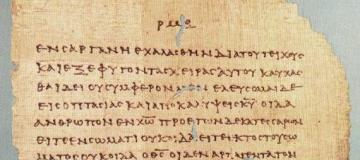 ΕΝϹΑΡΓΑΝΗΕΧΑΛΑϹΘΗΝΔΙΑΤΟΥΤΕΙΧΟΥϹ
ΚΑΙΕΞΕΦΥΓΟΝΤΑϹΧΕΙΡΑϹΑΥΤΟΥΚΑΥΧΑϹ
ΘΑΙΔΕΙΟΥϹΥΜΦΕΡΟΝΜΕΝΕΛΕΥϹΟΜΑΙΔΕ
ΕΙϹΟΠΤΑϹΙΑϹΚΑΙΑΠΟΚΑΛΥΨΕΙϹΚ̅Υ̅ΟΙΔΑ
ΑΝΘΡΩΠΟΝΕΝΧ̅Ρ̅Ω̅ΠΡΟΕΤΩΝΔΕΚΑΤΕϹϹΑΡΩΝ
ΕΙΤΕΕΝϹΩΜΑΤΙΟΥΚΟΙΔΑΕΙΤΕΕΚΤΟϹΤΟΥϹΩ
ΜΑΤΟϹΟΥΚΟΙΔΑΟΘ̅Ϲ̅ΟΙΔΕΝ